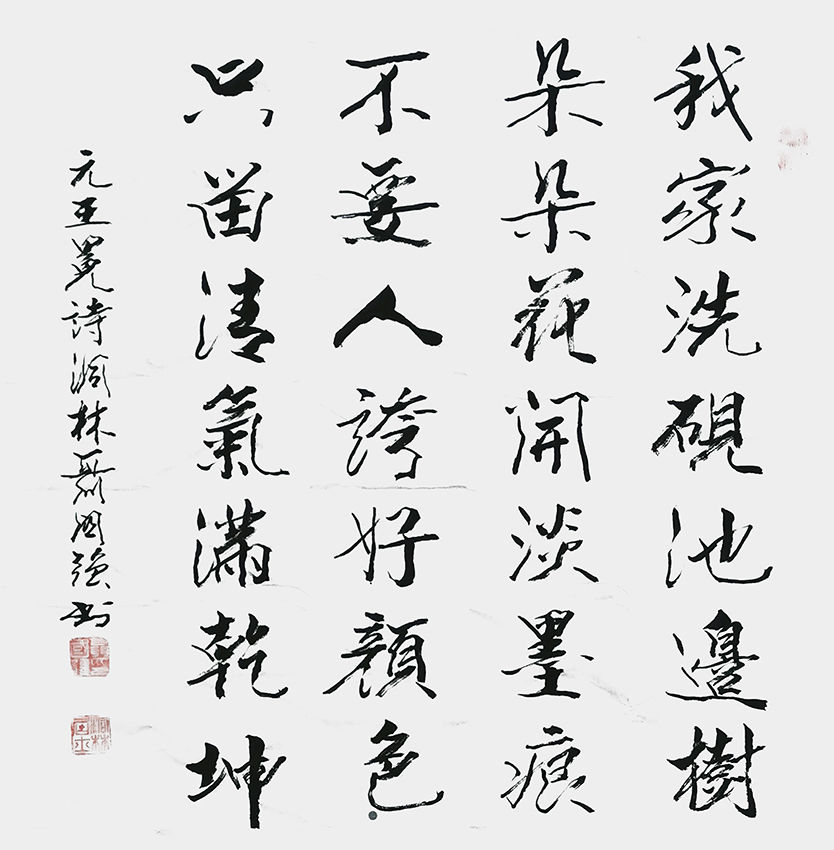 我家洗硯池邊樹
朵朵花開淡墨痕
不要人誇好顏色
只留清氣滿乾坤
元王冕詩林聶國強書